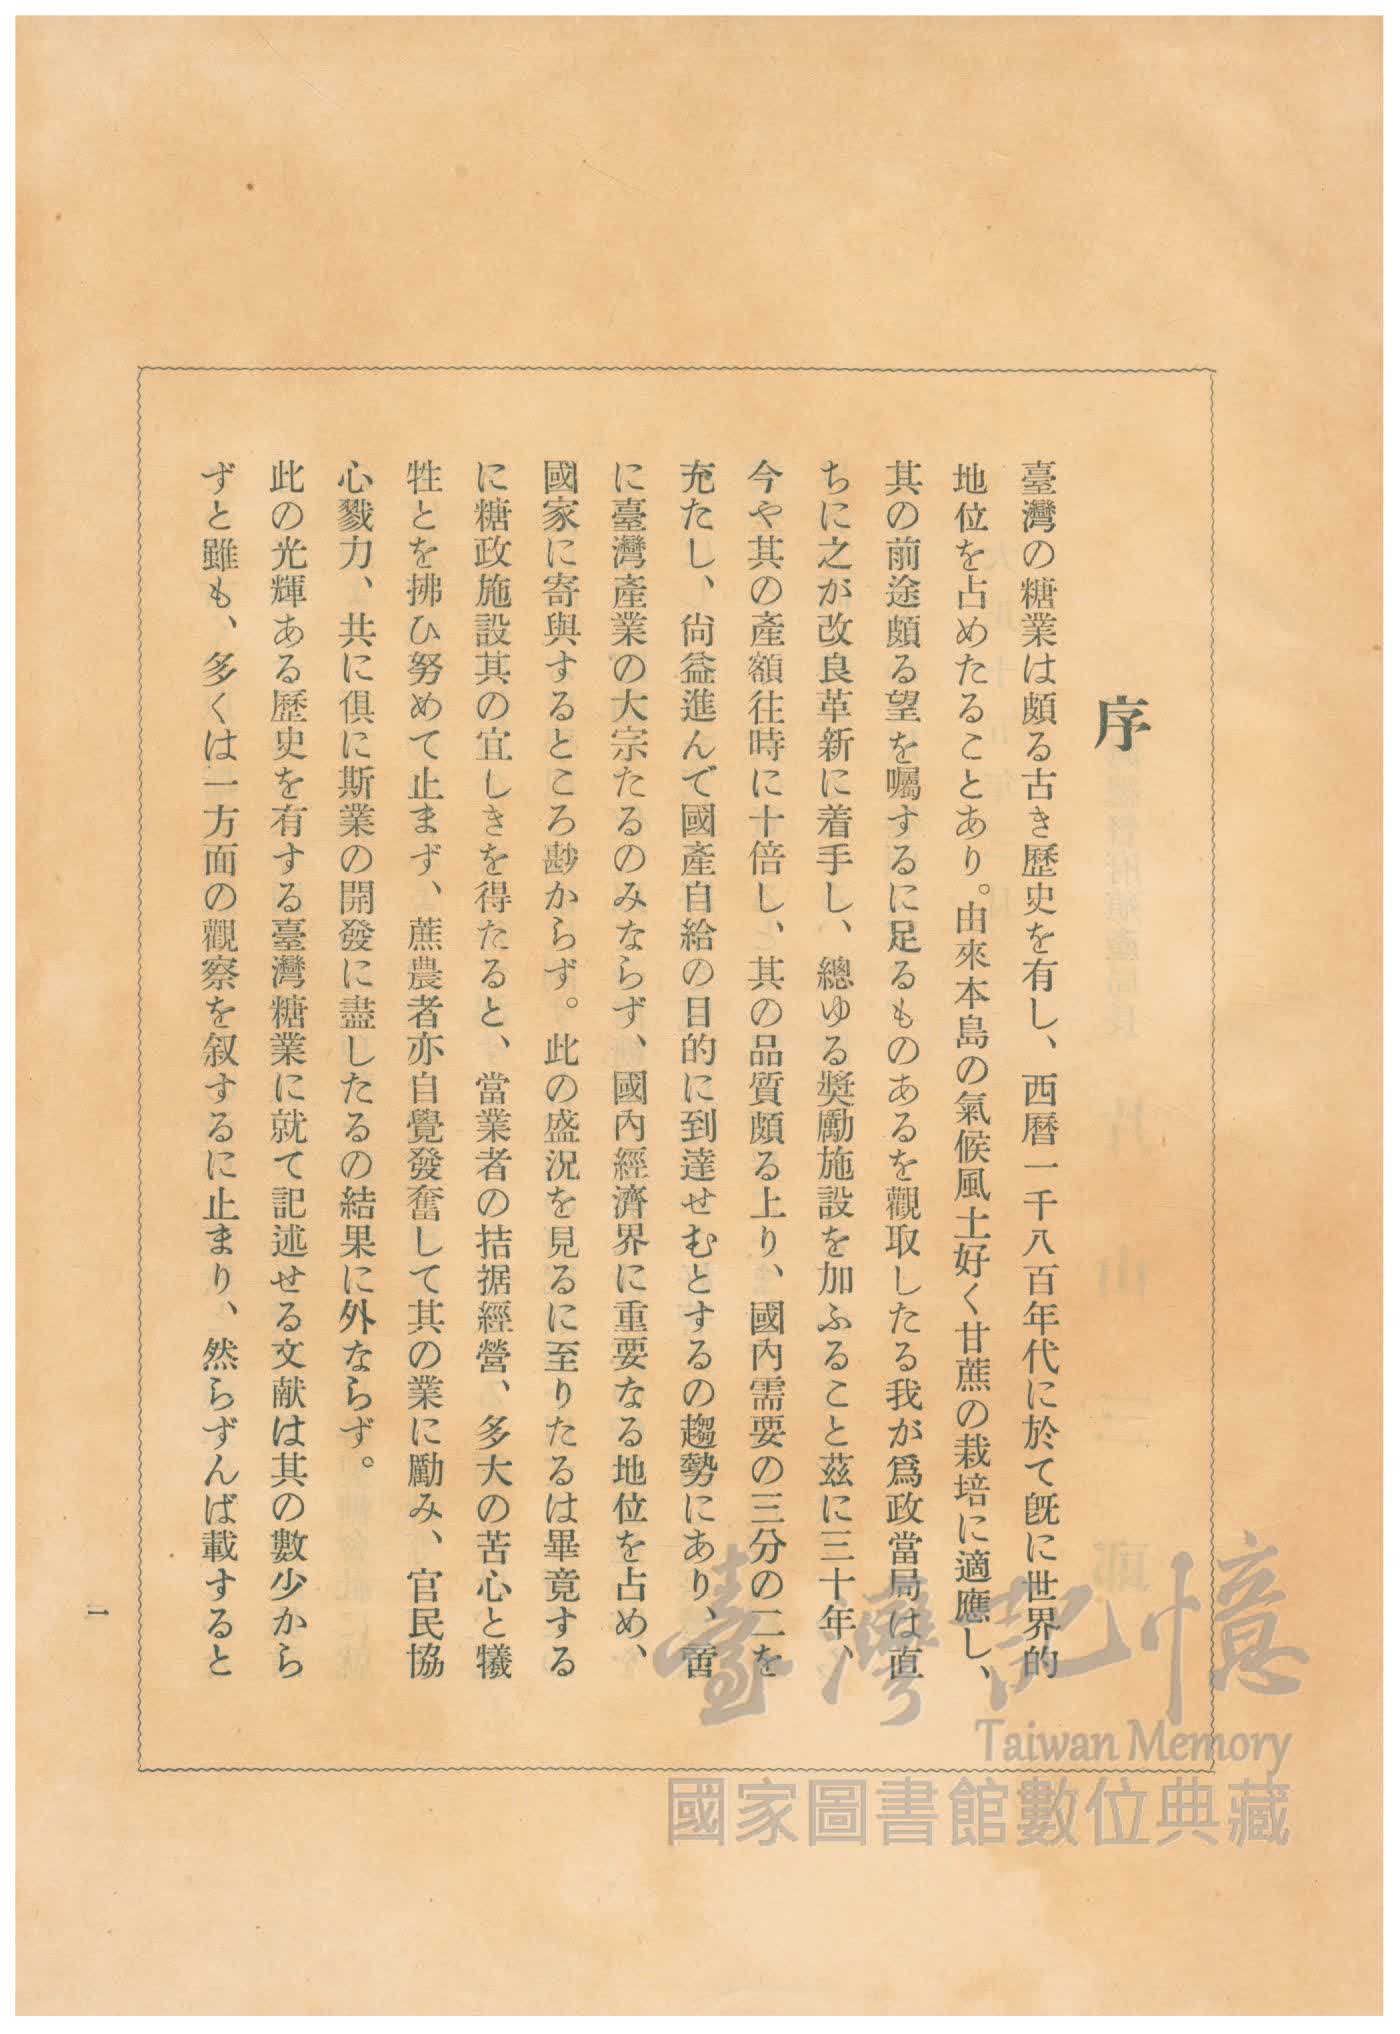 序
臺灣の糖業は頗る古き歷史を有し、西曆一千八百年代に於て旣に世界的
地位を占めたることあり。由來本島の氣候風土好く甘蔗の栽培に適應し、
其の前途頗る望を囑するに足るものあるを觀取したる我が爲政當局は直
ちに之が改良革新に着手し、總ゆる奬勵施設を加ふること茲に三十年、
今や其の產額往時に十倍し、其の品質頗る上り、國內需要の三分の二を
充たし、尙益進んで國產自給の目的に到達せむとするの趨勢にあり、啻
に臺灣產業の大宗たるのみならず、國內經濟界に重要なる地位を占め、
國家に寄與するところ尠からず。此の盛況を見るに至りたるは畢竟する
に糖政施設其の宜しきを得たると、當業者の拮据經營、多大の苦心と犧
牲とを拂ひ努めて止まず、蔗農者亦自覺發奮して其の業に勵み、官民協
心戮力、共に俱に斯業の開發に盡したるの結果に外ならず。
此の光輝ある歷史を有する臺灣糖業に就て記述せる文献は其の數少から
ずと雖も、多くは一方面の觀察を叙するに止まり、然らずんば載すると
一
臺灣記憶
Taiwan Memory
國家圖書館數位典藏